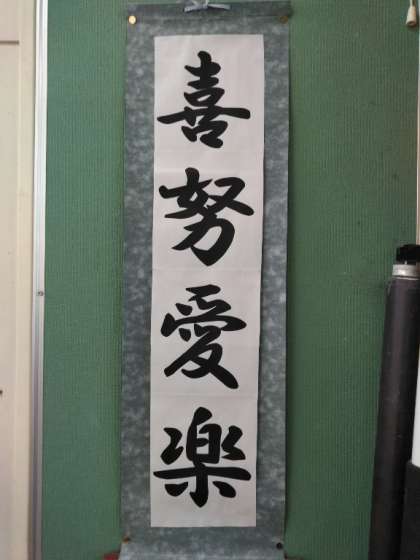 喜努愛楽